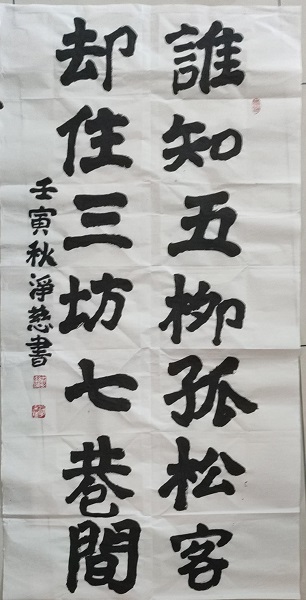 誰知五柳孤松客
却住三坊七巷間
壬寅秋淨慈書